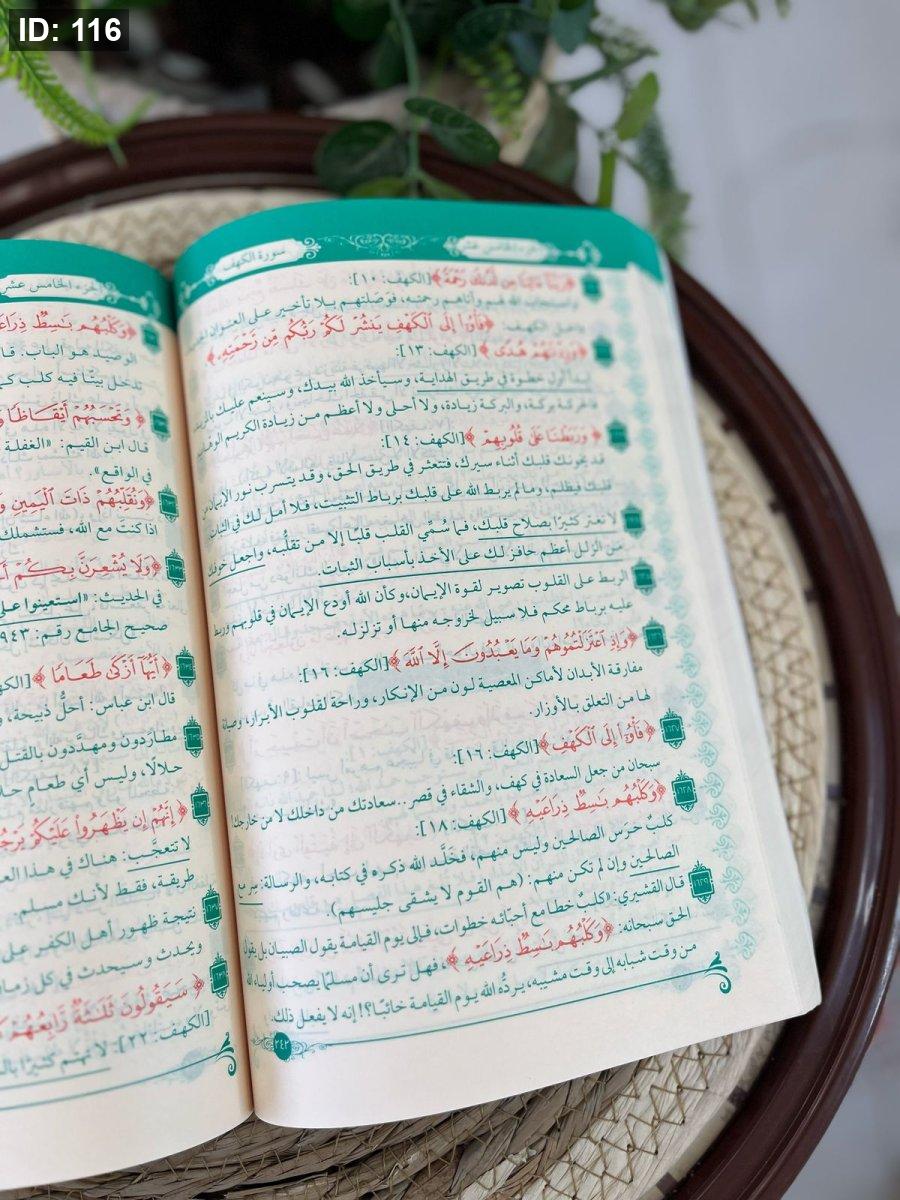 ID: 116
الجزء الخامس عشر
سورة الكهف
﴿رَبَّنَا ءَاتِنَا مِن لَّدُنكَ رَحْمَةً﴾ [الكهف: ١٠]:
فاستجاب الله لهم وآتاهم رحمته، فوَصَلتهم بلا تأخير على العنوان
داخل الكهف: ﴿فَأْوُۥٓا۟ إِلَى ٱلْكَهْفِ يَنشُرْ لَكُمْ رَبُّكُم مِّن رَّحْمَتِهِۦ﴾.
﴿وَزِدْنَٰهُمْ هُدًى﴾ [الكهف: ١٣]:
ابدأ أول خطوة في طريق الهداية، وسيأخذ الله بيدك، وسينعم عليك
فالحركة بركة، والبركة زيادة، ولا أحلى ولا أعظم من زيادة الكريم
﴿وَرَبَطْنَا عَلَىٰ قُلُوبِهِمْ﴾ [الكهف: ١٤]:
قد يخونك قلبك أثناء سيرك، فتتعثر في طريق الحق، وقد يتسرب نور الإيمان من
قلبك فيظلم، وما لم يربط الله على قلبك برباط التثبيت، فلا أمل لك في الثبات.
لا تغتر كثيرًا بصلاح قلبك، فما سُمِّي القلب قلبًا إلا من تقلُّبه، واجعل خوفك
من الزلل أعظم حافز لك على الأخذ بأسباب الثبات.
الربط على القلوب تصوير لقوة الإيمان، وكأن الله أودع الإيمان في قلوبهم وربط
عليه برباط محكم فلا سبيل لخروجه منها أو تزلزله.
﴿وَإِذِ ٱعْتَزَلْتُمُوهُمْ وَمَا يَعْبُدُونَ إِلَّا ٱللَّهَ﴾ [الكهف: ١٦]:
مفارقة الأبدان لأماكن المعصية لون من الإنكار، وراحة لقلوب الأبرار، وصيانة
لها من التعلق بالأوزار.
﴿فَأْوُۥٓا۟ إِلَى ٱلْكَهْفِ﴾ [الكهف: ١٦]:
سبحان من جعل السعادة في كهف، والشقاء في قصر.. سعادتك من داخلك لا من خارجك!
﴿وَكَلْبُهُم بَٰسِطٌ ذِرَاعَيْهِ﴾ [الكهف: ١٨]:
كلبٌ حرَس الصالحين وليس منهم، فخَلَّد الله ذكره في كتابه، والرسالة: سِر مع
الصالحين وإن لم تكن منهم: (هم القوم لا يشقى جليسهم).
قال القشيري: «كلبٌ خطا مع أحبَّائه خطوات، فإلى يوم القيامة يقول الصبيان بل يقول
الحق سبحانه: ﴿وَكَلْبُهُم بَٰسِطٌ ذِرَاعَيْهِ﴾، فهل ترى أن مسلمًا يصحب أولياء الله
من وقت شبابه إلى وقت مشيبه، يردُّه الله يوم القيامة خائبًا؟! إنه لا يفعل ذلك.
٢٤٢
الجزء الخامس عشر
﴿وَكَلْبُهُم بَٰسِطٌ
الوصيد هو الباب.
تدخل بيتًا فيه كلب
﴿وَتَحْسَبُهُمْ أَيْقَاظًا
قال ابن القيم: «الغفلة
في الواقع».
﴿وَنُقَلِّبُهُمْ ذَاتَ ٱلْيَمِينِ
إذا كنتَ مع الله، فستشملك
﴿وَلَا يُشْعِرَنَّ بِكُمْ
في الحديث: «استعينوا
صحيح الجامع رقم: ٩٤٣
﴿أَيُّهَآ أَزْكَىٰ طَعَامًا﴾
قال ابن عباس: أحلُّ ذبيحة،
مطارَدون ومهدَّدون بالقتل
حلالًا، وليس أي طعام
﴿إِنَّهُمْ إِن يَظْهَرُوا۟ عَلَيْكُمْ
لا تتعجَّب: هناك في هذا
طريقة، فقط لأنك مسلم.
نتيجة ظهور أهل الكفر على
ويحدث وسيحدث في كل
﴿سَيَقُولُونَ ثَلَٰثَةٌ رَّابِعُهُمْ
[الكهف: ٢٢]: لا تهتم كثيرًا